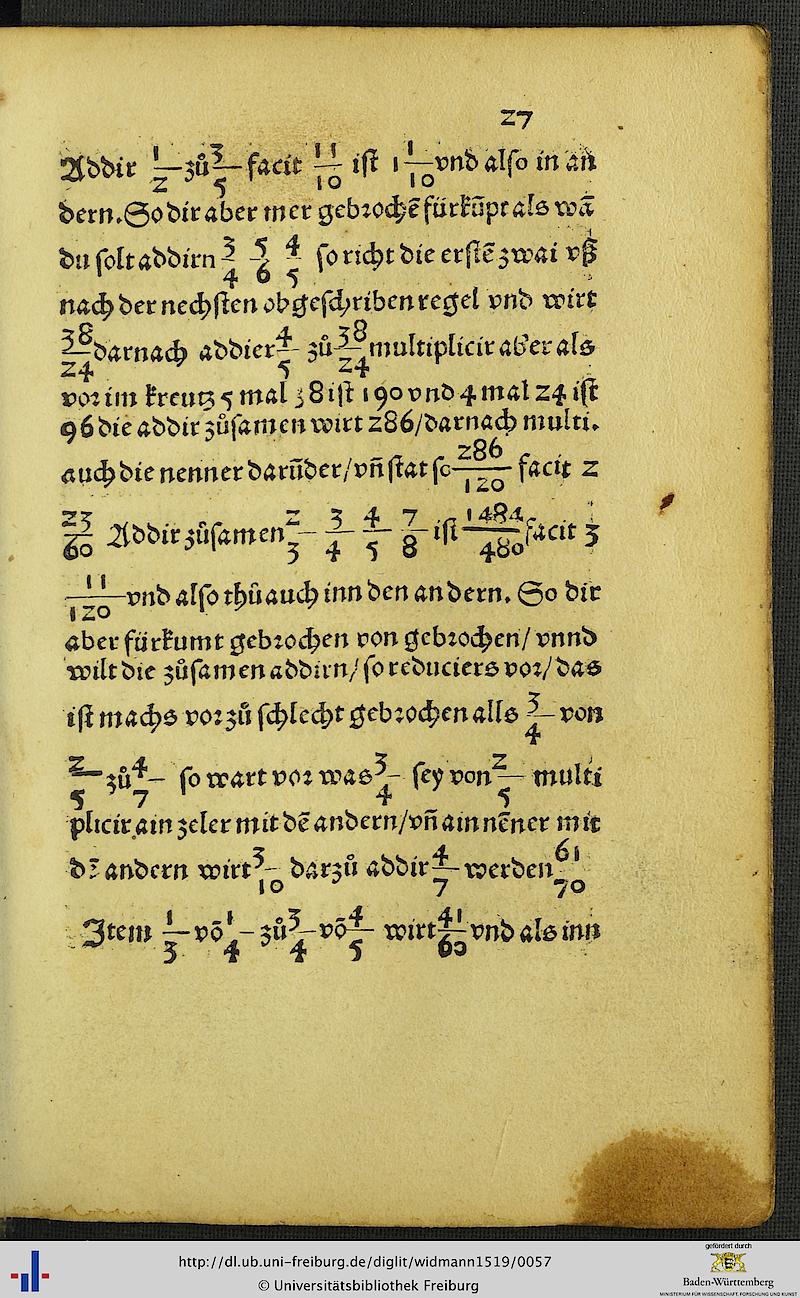 27
Addir 1/2 zů 3/5 facit 11/10 ist 1 1/10 vnd also in an
dern. So dir aber mer gebrochē fürkūpt als wā
du solt addirn 3/4 5/6 4/5 so richt die erstē zwai vß
nach der nechsten obgeschriben regel vnd wirt
38/24 darnach addier 4/5 zů 38/24 multiplicir aber als
vor im kreutz 5 mal 38 ist 190 vnd 4 mal 24 ist
96 die addir zůsamen wirt 286/darnach multi.
auch die nenner darūder/vn̄ stat so 286/120 facit 2
23/60 Addir zůsamen 2/3 3/4 4/5 7/8 ist 1484/480 facit 3
11/120 vnd also thů auch inn den andern. So dir
aber fürkumt gebrochen von gebrochen/ vnnd
wilt die zůsamen addirn/ so reduciers vor/ das
ist machs vor zů schlecht gebrochen alls 3/4 von
2/5 zů 4/7 so wart vor was 3/4 sey von 2/5 multi
plicir ain zeler mit dē andern/vn̄ ain nēner mit
dē andern wirt 3/10 darzů addir 4/7 werden 61/70
Item 1/3 vō 1/4 zů 3/4 vō 4/5 wirt 41/60 vnd als inn
http://dl.ub.uni-freiburg.de/diglit/widmann1519/0057
© Universitätsbibliothek Freiburg
gefördert durch
Baden-Württemberg
MINISTERIUM FÜR WISSENSCHAFT, FORSCHUNG UND KUNST